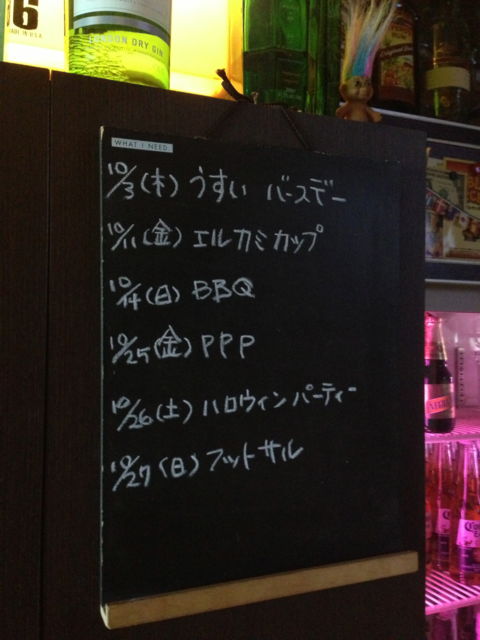 16
MADE IN U.S.A.
LONDON DRY GIN
WHAT I NEED
10/3(木) うすい バースデー
10/11(金) エルカミカップ
10/14(日) BBQ
10/25(金) PPP
10/26(土) ハロウィンパーティー
10/27(日) フットサル